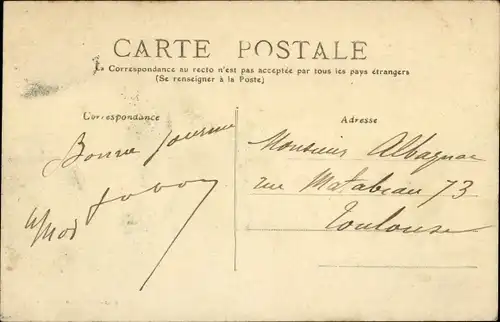 CARTE POSTALE
La Correspondance au recto n'est pas acceptée par tous les pays étrangers
(Se renseigner à la Poste)
Correspondance
Adresse
Bonne journée
Monsieur Albagnac
rue Matabiau 73
Toulouse